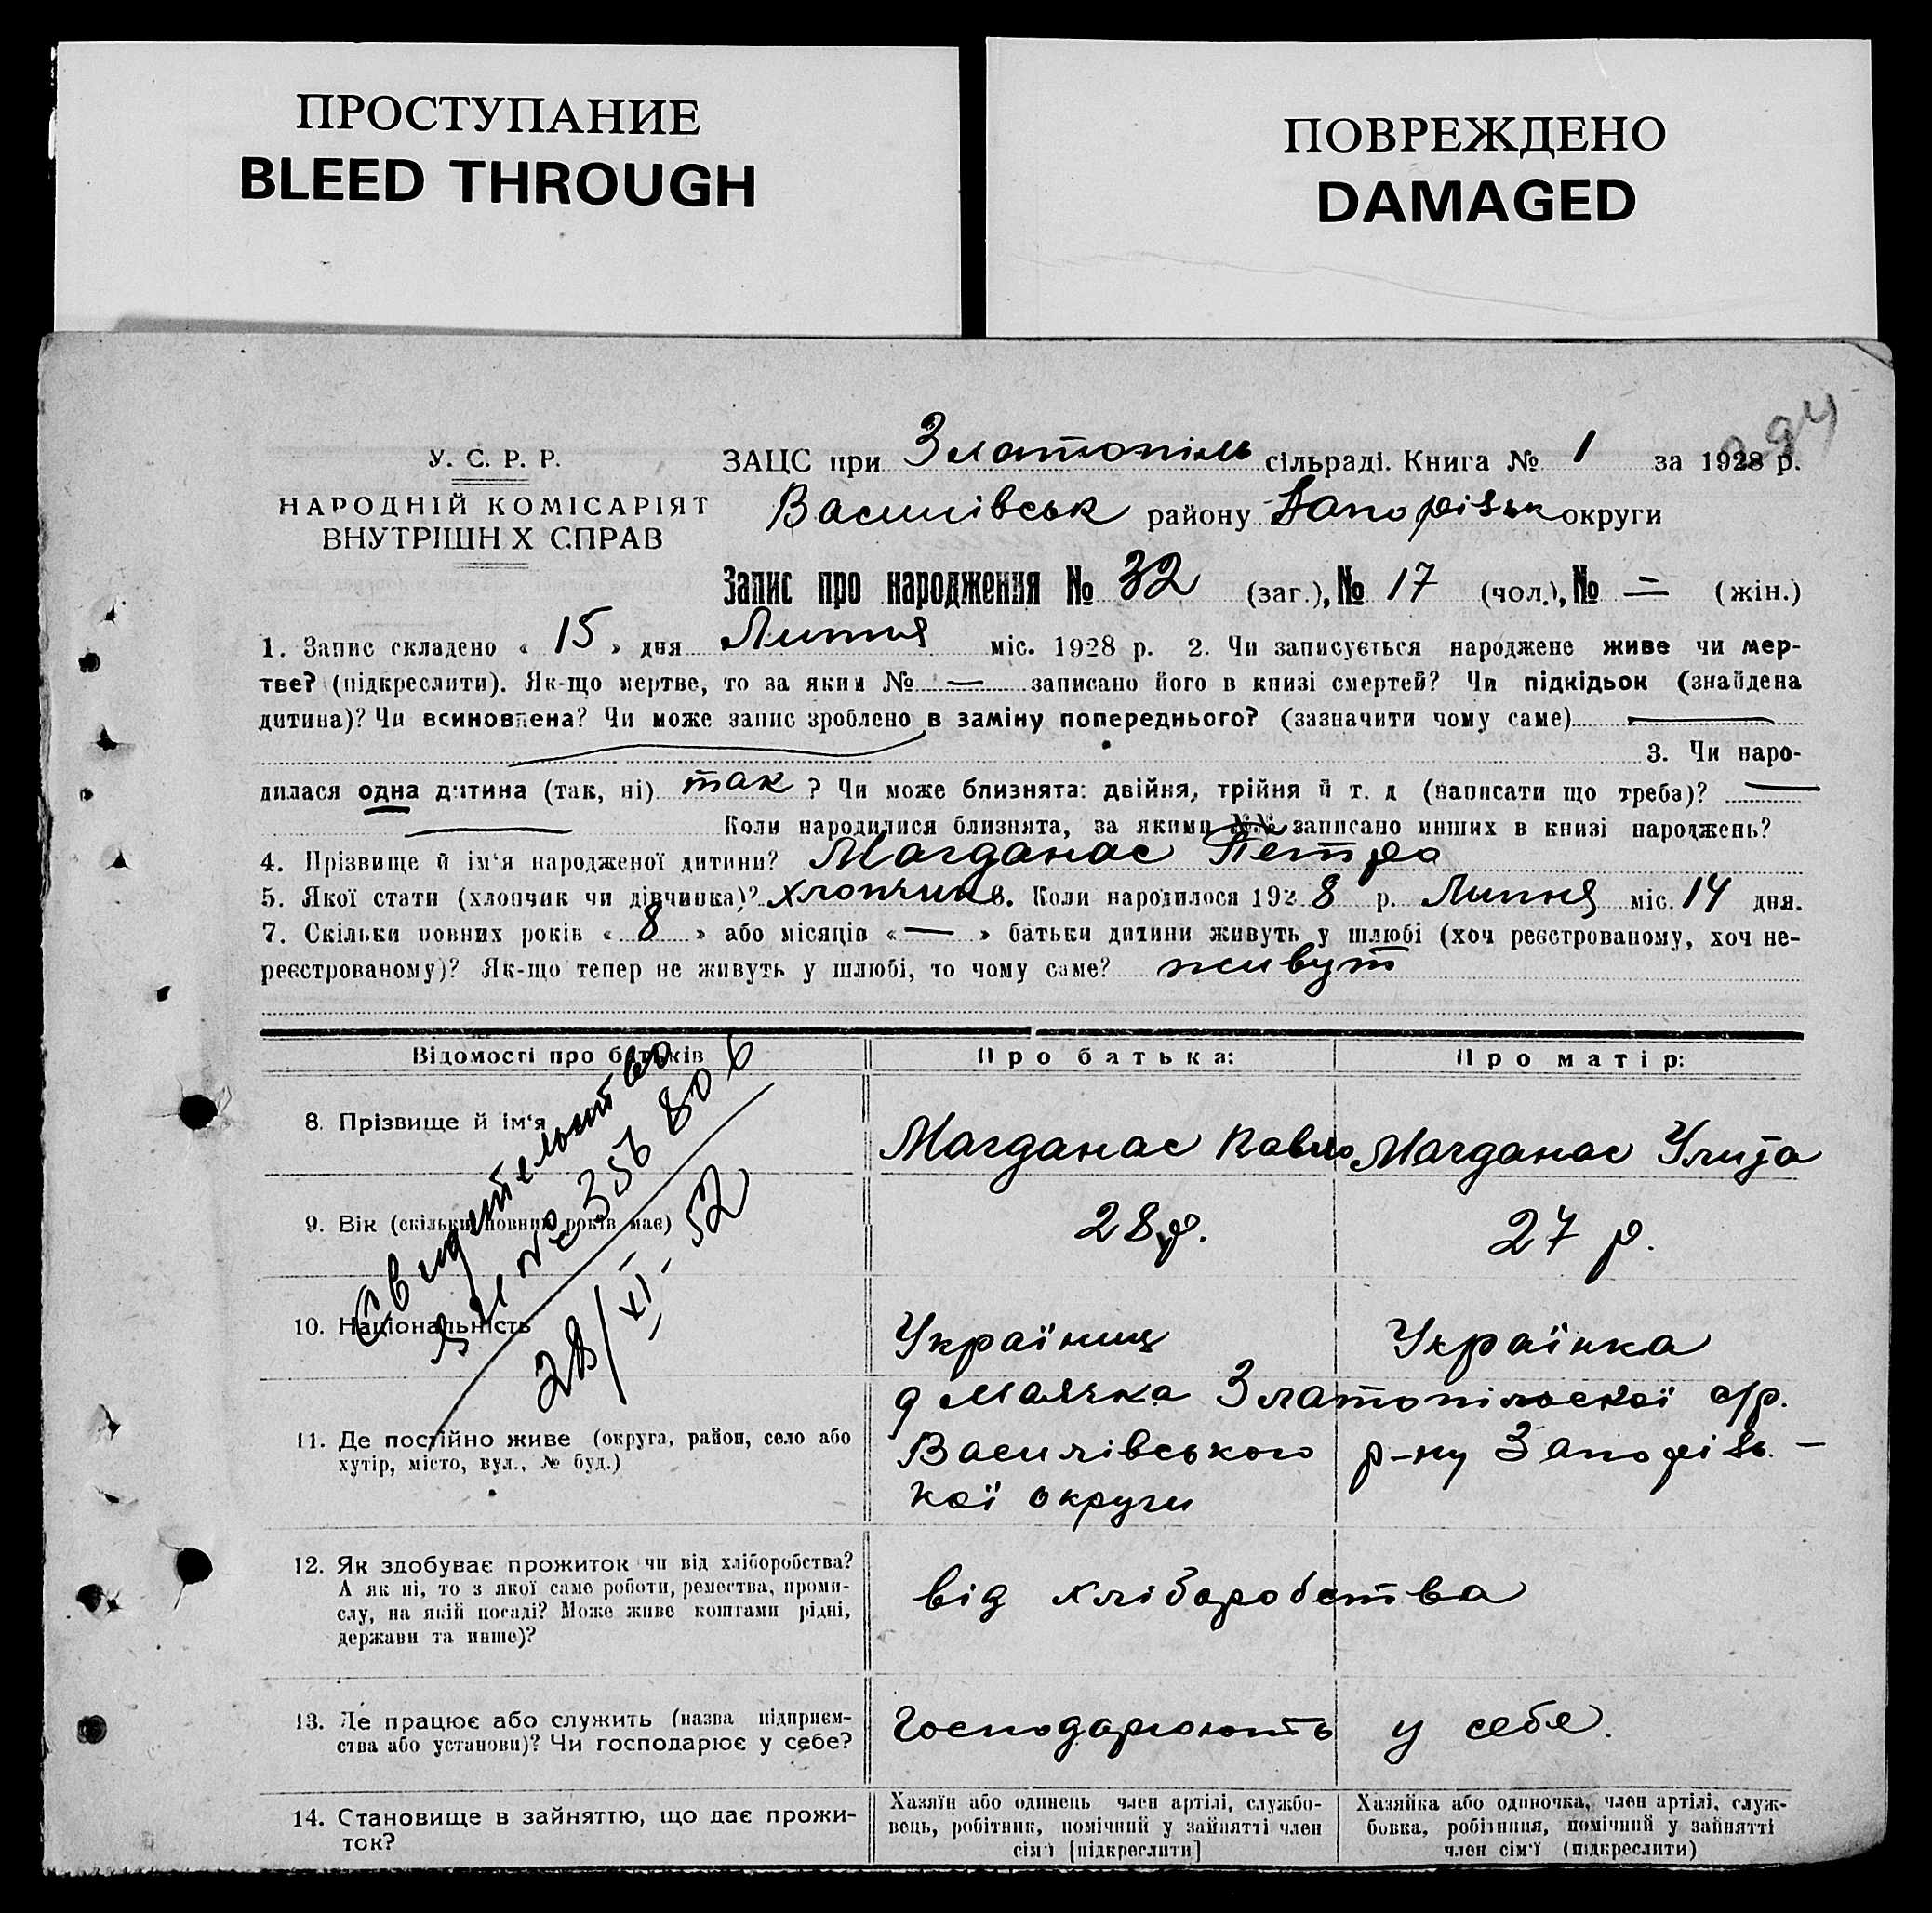 ПРОСТУПАНИЕ
BLEED THROUGH
ПОВРЕЖДЕНО
DAMAGED
294
У. С. Р. Р.
НАРОДНІЙ КОМІСАРІЯТ
ВНУТРІШН Х СПРАВ
ЗАЦС при Златопіль сільраді. Книга № 1 за 1928 р.
Василівськ району Запорізьк округи
Запис про народження № 32 (заг.), № 17 (чол.), № — (жін.)
1. Запис складено « 15 » дня Липня міс. 1928 р. 2. Чи записується народжене живе чи мер-
тве? (підкреслити). Як-що мертве, то за яким № — записано його в книзі смертей? Чи підкідьок (знайдена
дитина)? Чи всиновлена? Чи може запис зроблено в заміну попереднього? (зазначити чому саме) —
3. Чи наро-
дилася одна дитина (так, ні) так ? Чи може близнята: двійня, трійня й т. д (написати що треба)? —
Коли народилися близнята, за якими №№ записано инших в книзі народжень?
4. Прізвище й ім'я народженої дитини? Магданас Петро
5. Якої стати (хлопчик чи дівчинка)? хлопчик 6. Коли народилося 1928 р. Липня міс. 14 дня.
7. Скільки повних років « 8 » або місяців « — » батьки дитини живуть у шлюбі (хоч реєстрованому, хоч не-
реєстрованому)? Як-що тепер не живуть у шлюбі, то чому саме? живут
Відомості про батьків
Про батька:
Про матір:
8. Прізвище й ім'я
Магданас Павло
Магданас Улита
9. Вік (скільки повних років має)
28 р.
27 р.
10. Національність
Українц
Українка
Свидетельство
ЯИ № 356 806
28/XI-52
11. Де постійно живе (округа, район, село або
хутір, місто, вул., № буд.)
д Маячка Златопільскої с/р.
Василівського р-ну Запорізь. —
кої округи
12. Як здобуває прожиток чи від хліборобства?
А як ні, то з якої саме роботи, ремества, проми-
слу, на якій посаді? Може живе коштами рідні,
держави та инше)?
від хліборобства
13. Де працює або служить (назва підприєм-
ства або установи)? Чи господарює у себе?
Господарюють у себе.
14. Становище в зайняттю, що дає прожи-
ток?
Хазяїн або одинець член артілі, службо-
вець, робітник, помічний у зайнятті член
сім'ї [підкреслити]
Хазяйка або одиночка, член артілі, служ-
бовка, робітниця, помічний у зайнятті
член сім'ї (підкреслити)